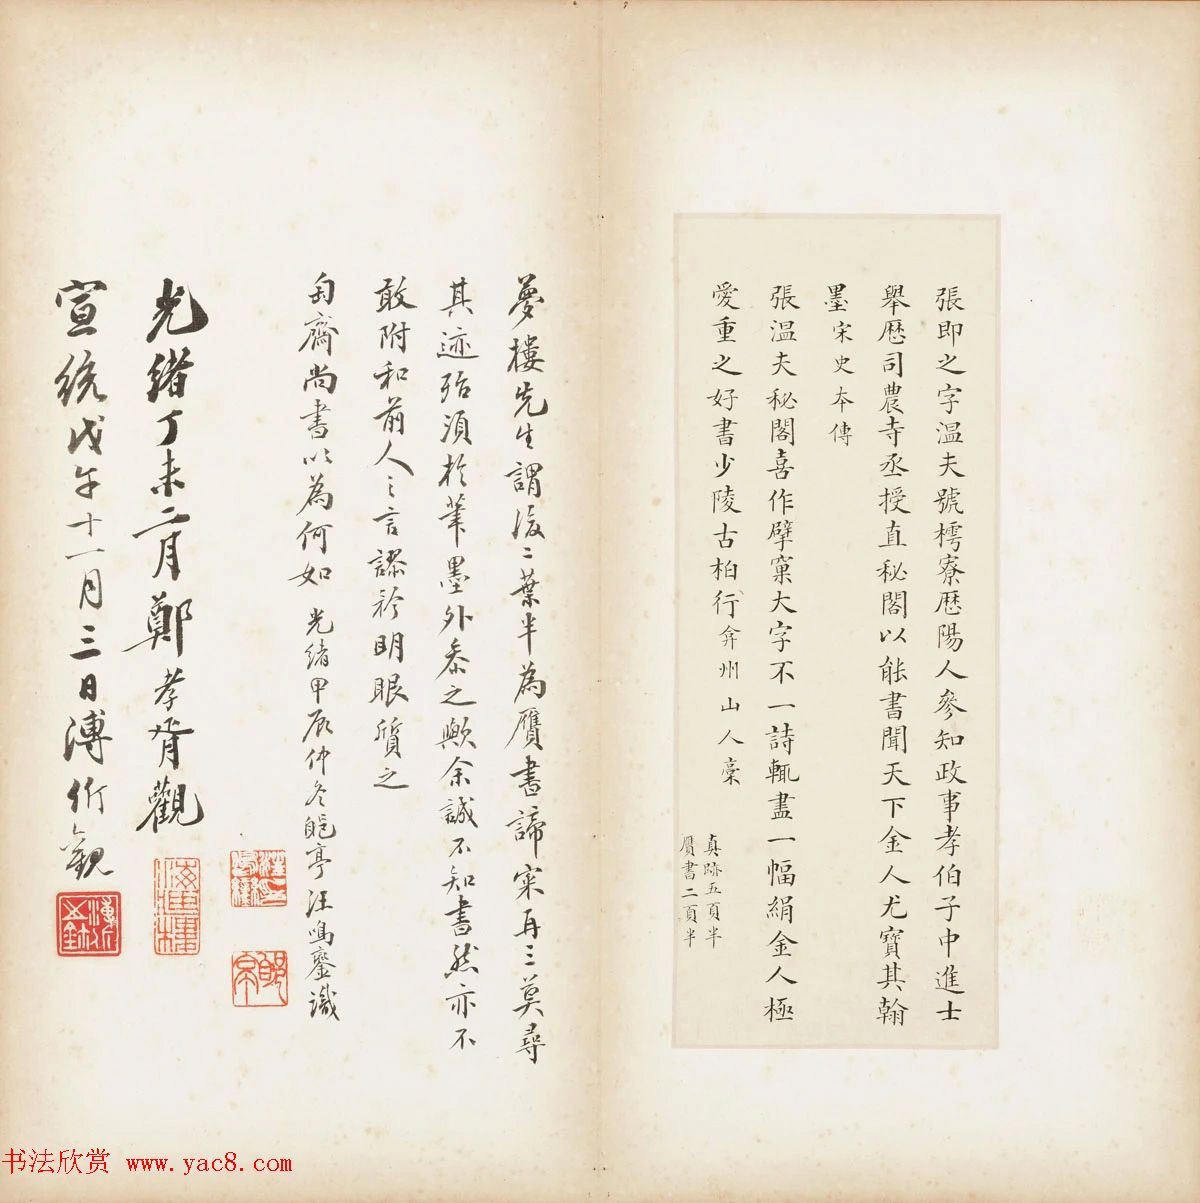 張即之字溫夫號樗寮歷陽人參知政事孝伯子中進士
舉歷司農寺丞授直秘閣以能書聞天下金人尤寶其翰
墨宋史本傳
張溫夫秘閣喜作擘窠大字不一詩輒盡一幅絹金人極
愛重之好書少陵古柏行弇州山人稾
真跡五頁半
贗書二頁半
夢樓先生謂後二葉半為贗書諦宷再三莫尋
其迹殆須於筆墨外叅之歟余誠不知書然亦不
敢附和前人之言謬於明眼質之
匋齋尚書以為何如 光緒甲辰仲冬郋亭汪鳴鑾識
光緒丁未二月鄭孝胥觀
宣統戊午十一月三日溥伒觀
汪鳴鑾
郋亭
海藏樓
书法欣赏 www.yac8.com